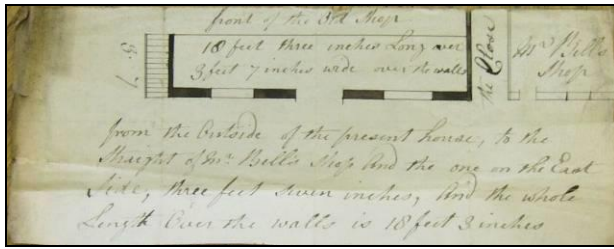 front of the Old Shop
18 feet three inches Long over
3 feet 7 inches wide over the walls
3.7
the Close
Mr. Bells
Shop
from the Outside of the present house, to the
Straight of Mr. Bell's Shop And the one on the East
Side, three feet seven inches, And the whole
Length Over the walls is 18 feet 3 inches